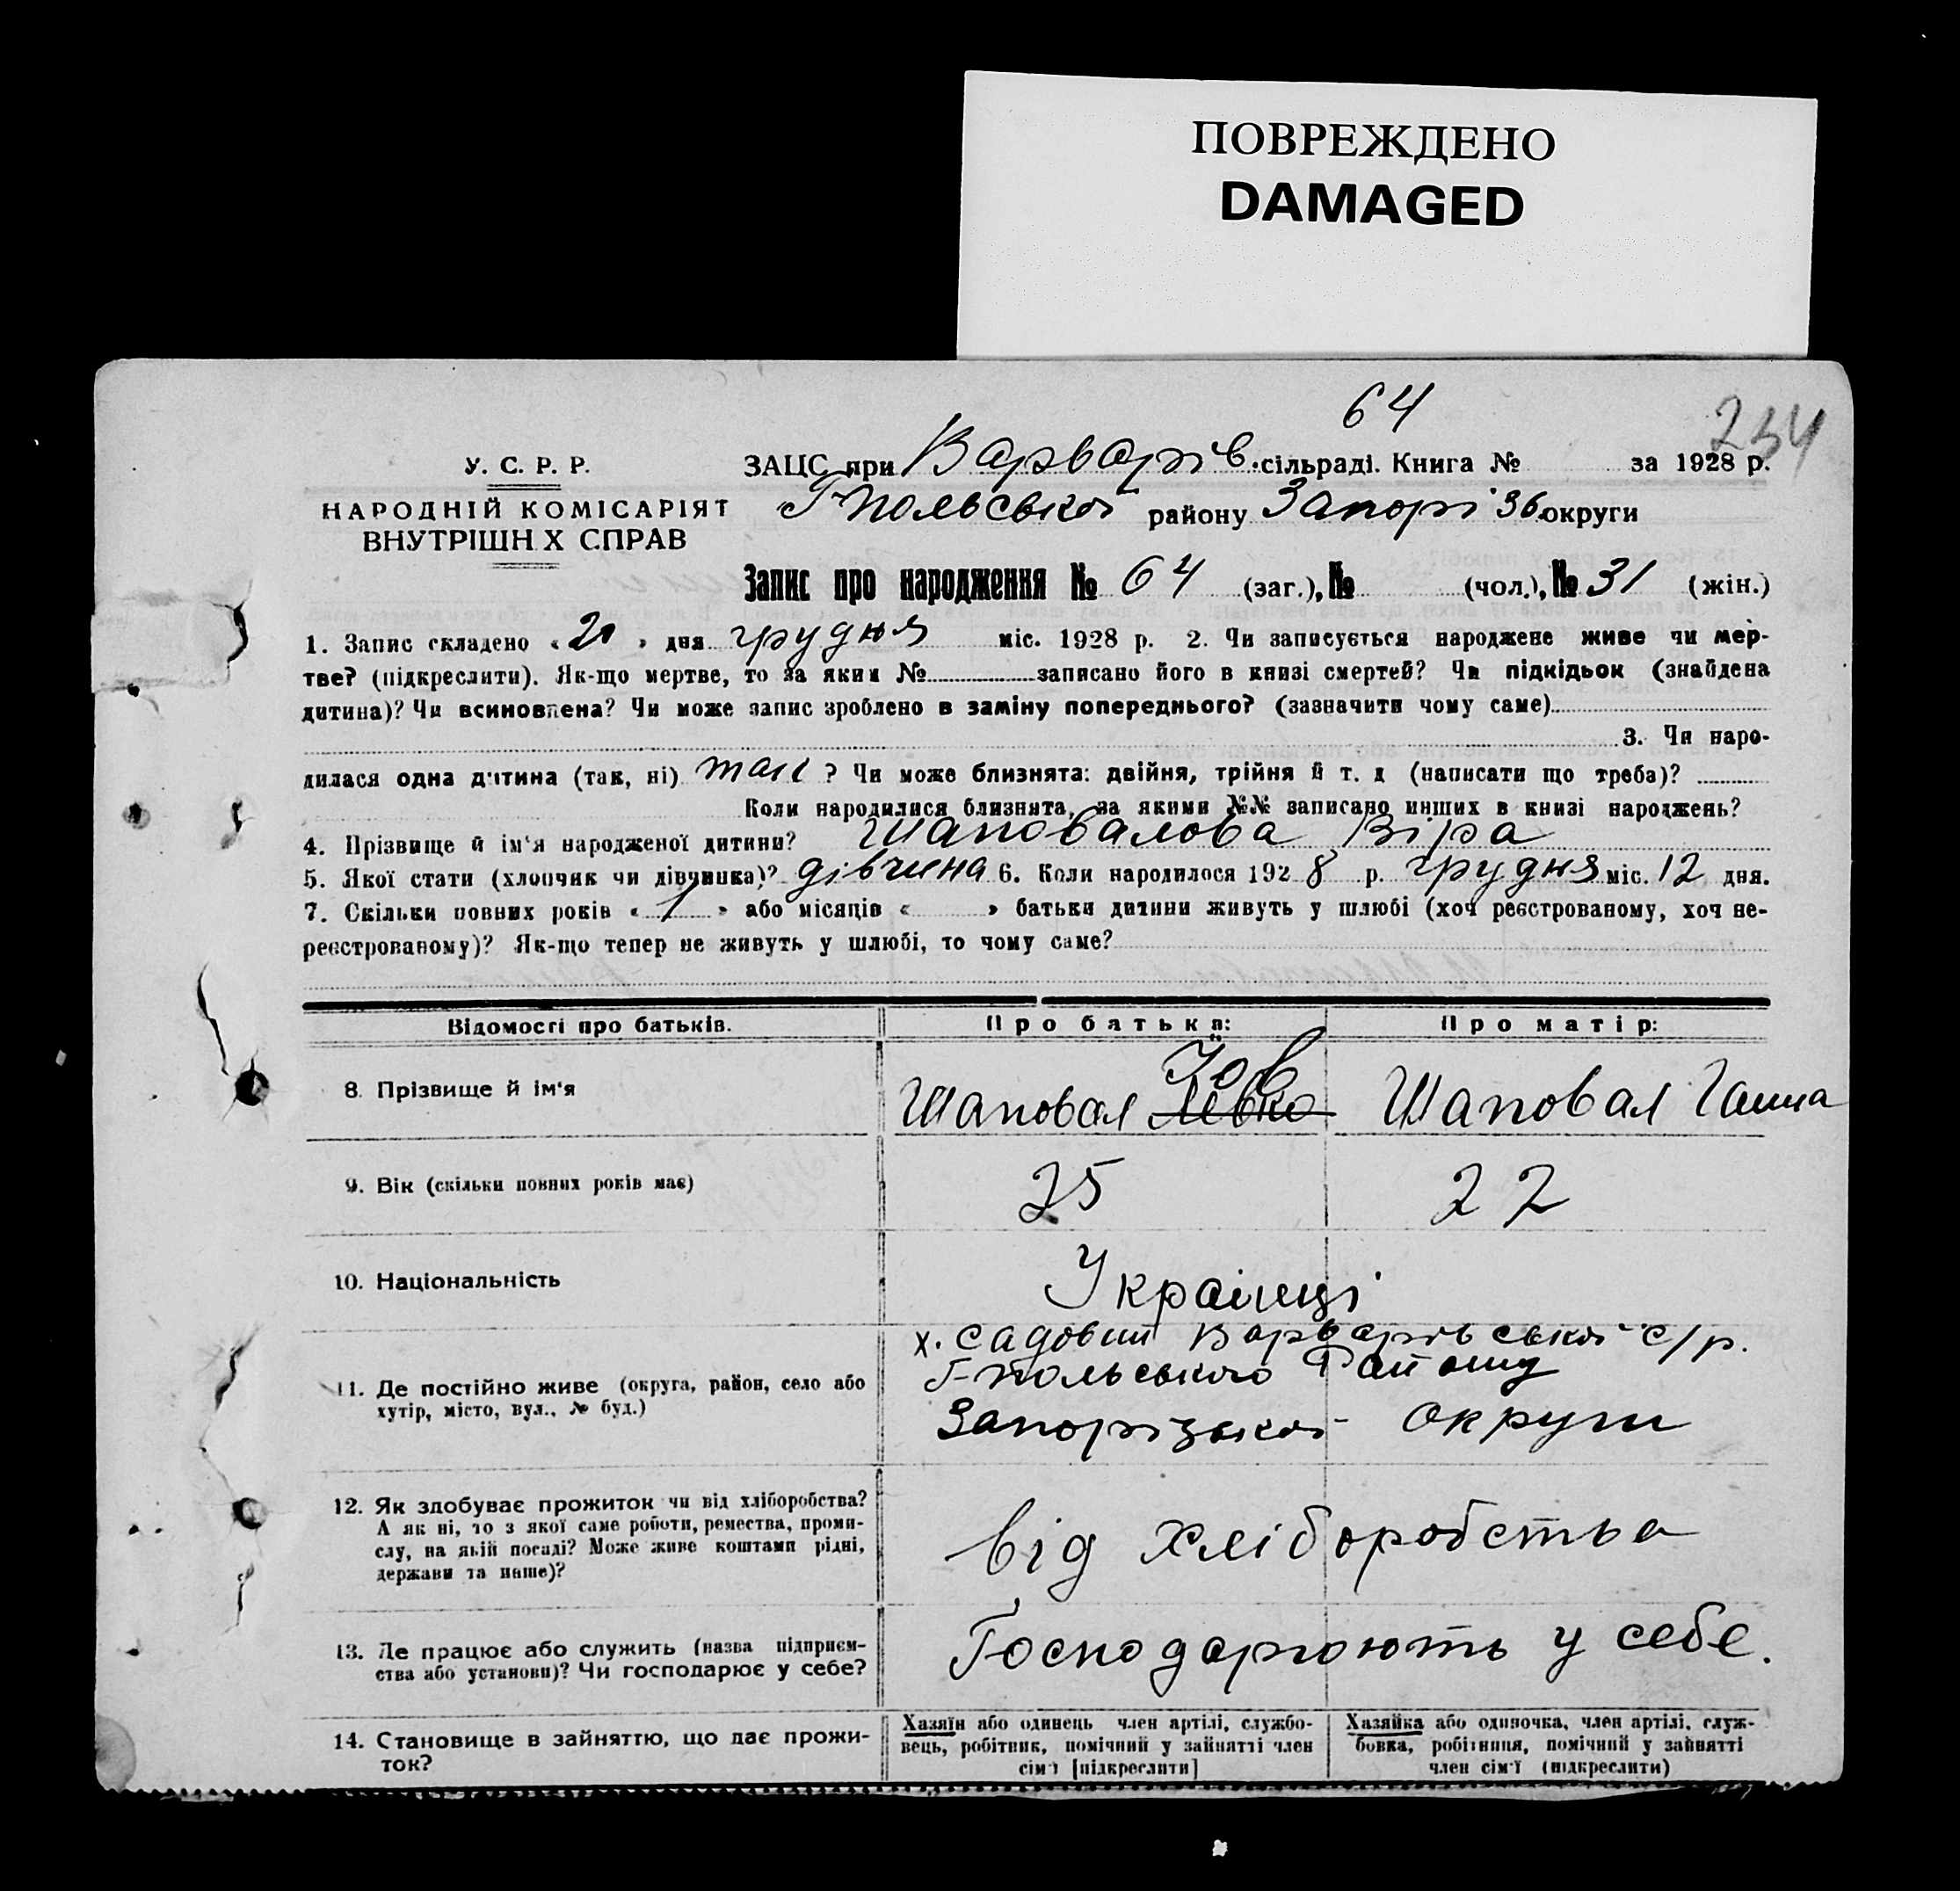 ПОВРЕЖДЕНО
DAMAGED
64
234
У. С. Р. Р.
НАРОДНІЙ КОМІСАРІЯТ
ВНУТРІШН Х СПРАВ
ЗАЦС при Варварів. сільраді. Книга № за 1928 р.
Г-Польської району Запоріз. округи
Запис про народження № 64 (заг.), № (чол.), № 31 (жін.)
1. Запис складено « 20 » дня грудня міс. 1928 р. 2. Чи записується народжене живе чи мер-
тве? (підкреслити). Як-що мертве, то за яким № записано його в книзі смертей? Чи підкідьок (знайдена
дитина)? Чи всиновлена? Чи може запис зроблено в заміну попереднього? (зазначити чому саме)
3. Чи наро-
дилася одна дитина (так, ні) так ? Чи може близнята: двійня, трійня й т. д (написати що треба)?
Коли народилися близнята, за якими №№ записано инших в книзі народжень?
4. Прізвище й ім'я народженої дитини? Шаповалова Віра
5. Якої стати (хлопчик чи дівчинка)? дівчина 6. Коли народилося 192 8 р. грудня міс. 12 дня.
7. Скільки повних років « 1 » або місяців « » батьки дитини живуть у шлюбі (хоч реєстрованому, хоч не-
реєстрованому)? Як-що тепер не живуть у шлюбі, то чому саме?
Відомості про батьків.
Про батька:
Про матір:
8. Прізвище й ім'я
Йов
Шаповал Левко
Шаповал Ганна
9. Вік (скільки повних років має)
25
22
10. Національність
Українці
11. Де постійно живе (округа, район, село або
хутір, місто, вул., № буд.)
х. Садовий Варварівської с/р.
Г-Польського Району
Запорізької Округи
12. Як здобуває прожиток чи від хліборобства?
А як ні, то з якої саме роботи, ремества, проми-
слу, на якій посаді? Може живе коштами рідні,
держави та инше)?
від хліборобства
13. Де працює або служить (назва підприєм-
ства або установи)? Чи господарює у себе?
Господарюють у себе.
14. Становище в зайняттю, що дає прожи-
ток?
Хазяїн або одинець член артілі, службо-
вець, робітник, помічний у зайнятті член
сім'ї [підкреслити]
Хазяйка або одиночка, член артілі, служ-
бовка, робітниця, помічний у зайнятті
член сім'ї (підкреслити)